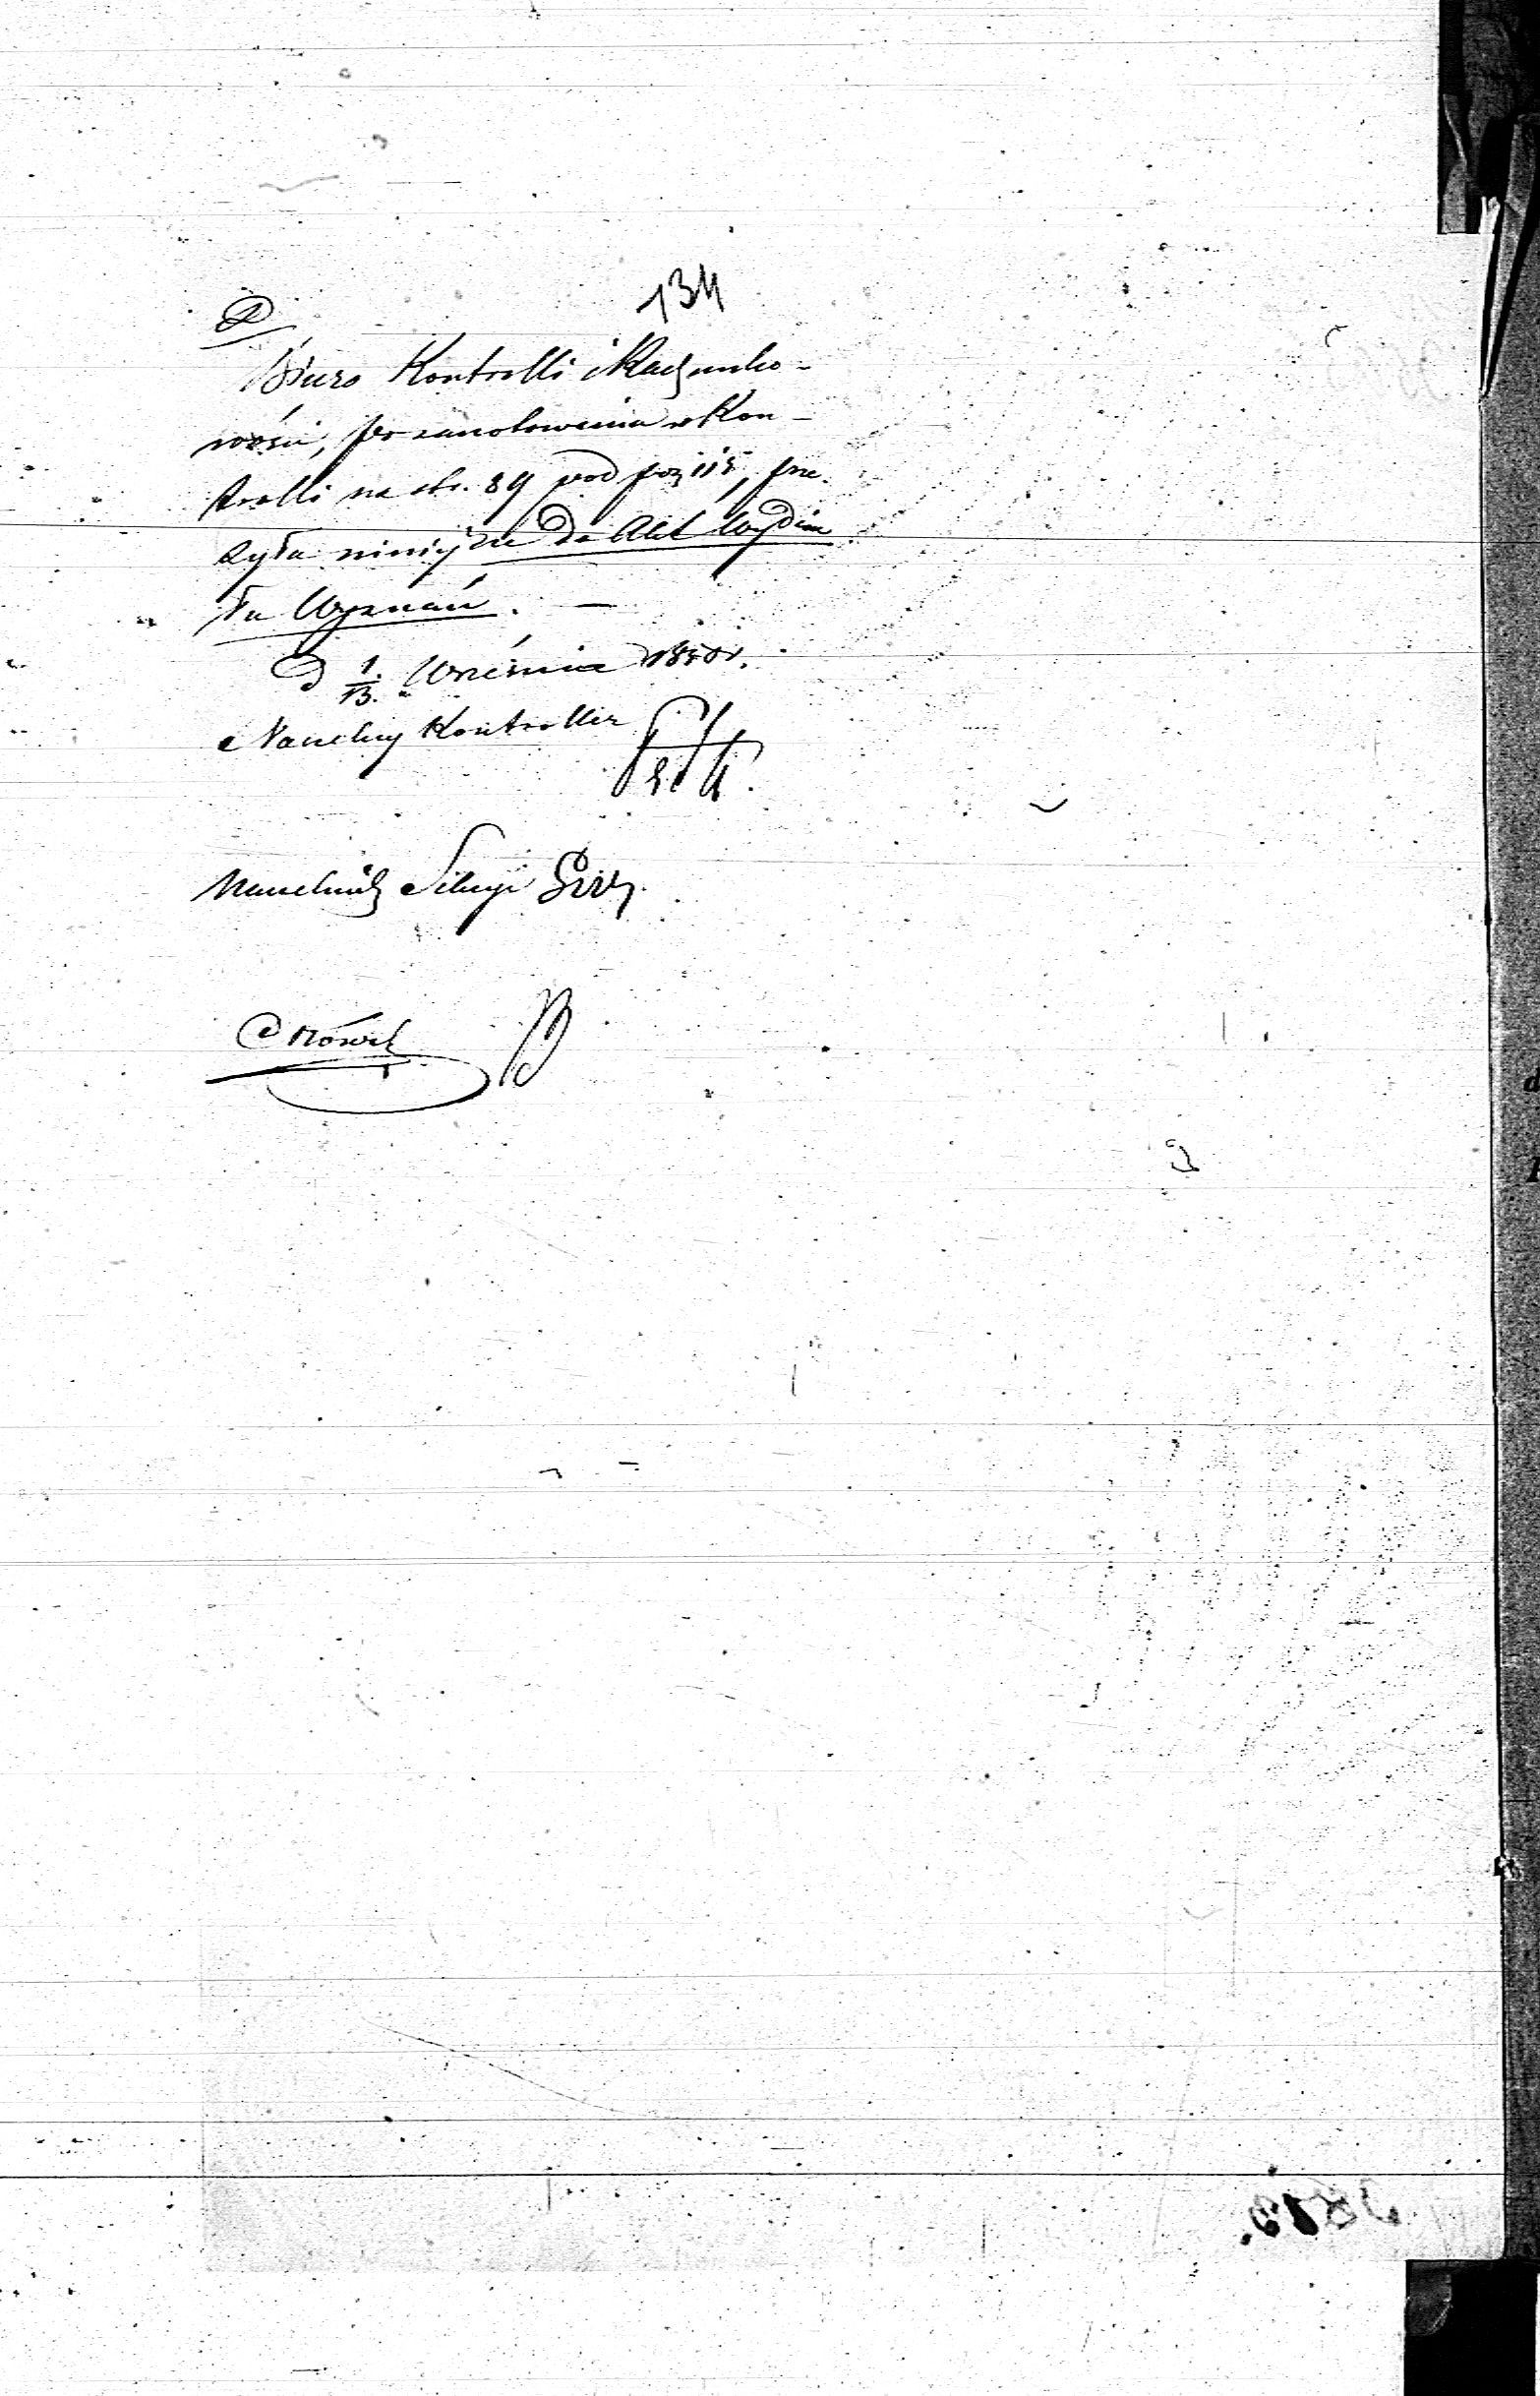 134
Biuro Kontrolli i Rachunko-
wości, po zanotowaniu w Kon-
trolli na str. 89 pod poz 115, prze-
syła niniejsze do Akt Wydzia
łu Wyznań. —
d 1/13. Września 1850 r.
Naczelny Kontroller
Naczelnik Sekcyi